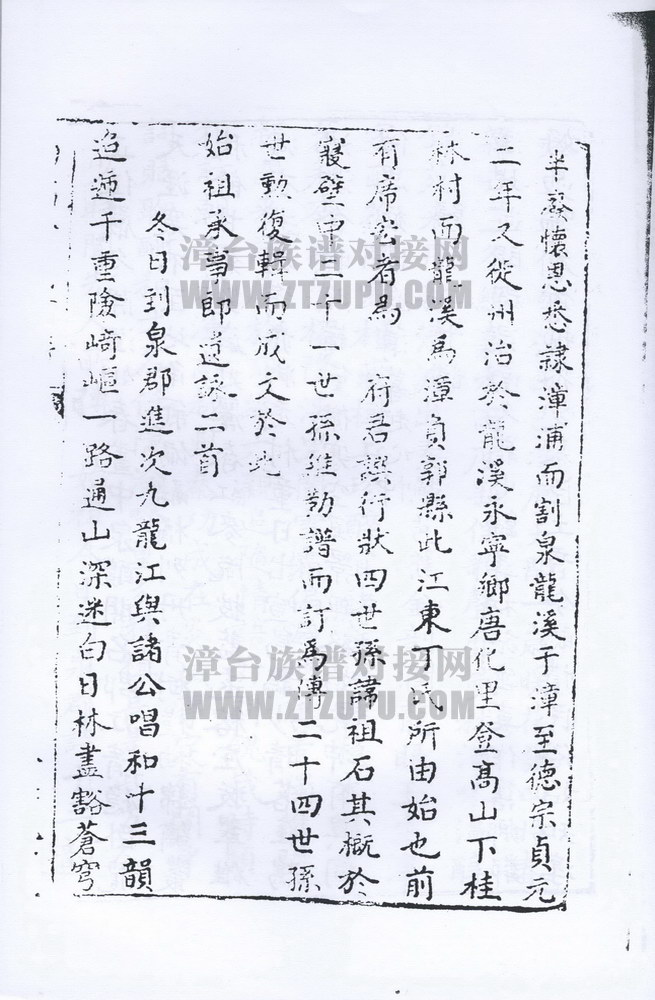 半廢懷恩悉隸漳浦而割泉龍溪于漳至德宗貞元
二年又徙州治於龍溪永寧鄉唐化里登高山下桂
林村而龍溪為漳負郭縣此江東丁氏所由始也前
有席宏者為　府君譔行狀四世孫諱祖石其概於
寢壁中二十一世孫維勘譜而訂為傳二十四世孫
世勳復輯而成文於此
始祖承事郎遺詠二首
冬日到泉郡進次九龍江與諸公唱和十三韻
迢遞千重險崎嶇一路通山深迷白日林盡豁蒼穹
漳台族谱对接网
WWW.ZTZUPU.COM
漳台族谱对接网
WWW.ZTZUPU.COM